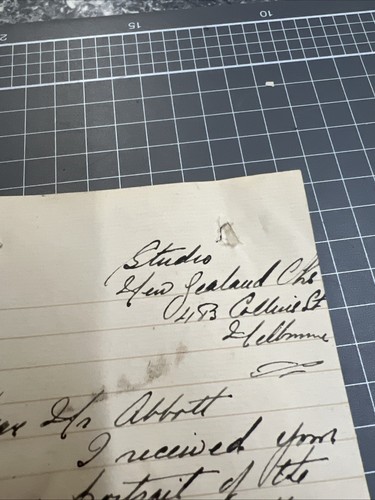 15
10
Studio
New Zealand Chs
483 Collins St
Melbourne
Mr Abbott
I received your
portrait of the